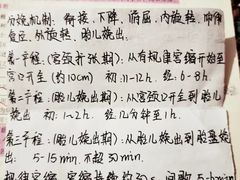 分娩机制：衔接、下降、俯屈、内旋转、仰伸
复位、外旋转、胎儿娩出.
第一产程：(宫颈扩张期)：从有规律宫缩开始至
宫口开全(约10cm) 初：11-12h. 经：6-8h.
第二产程：(胎儿娩出期)：从宫颈口开全到胎儿
娩出 初：1-2h. 经几分钟至1h.
第三产程：(胎盘娩出期)：从胎儿娩出到胎盘娩
出 5-15min, 不超30min.
规律宫缩：宫缩持续约30s 间歇5-6min